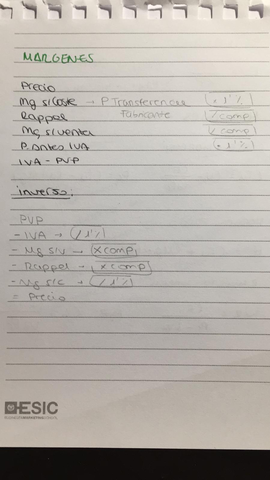 MARGENES
Precio
Mg s/coste → P Transferencia (· 1'%)
Rappel Fabricante (/ comp)
Mg s/venta (/ comp)
P. antes IVA (· 1'%)
IVA - PVP
inverso:
PVP
- IVA → (/ 1'%)
- Mg s/v → (x comp)
- Rappel → (x comp)
- Mg s/c → (/ 1'%)
= Precio
ESIC